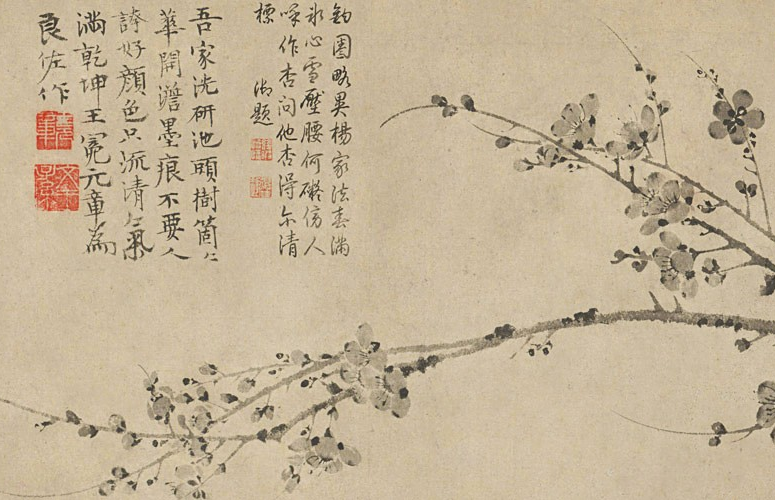 鉤圈略異楊家法春滿
冰心雪壓腰何礙傍人
呼作杏問他杏得尓清
標 御題
吾家洗研池頭樹箇〻
華開澹墨痕不要人
誇好顏色只流清氣
滿乾坤王冕元章為
良佐作